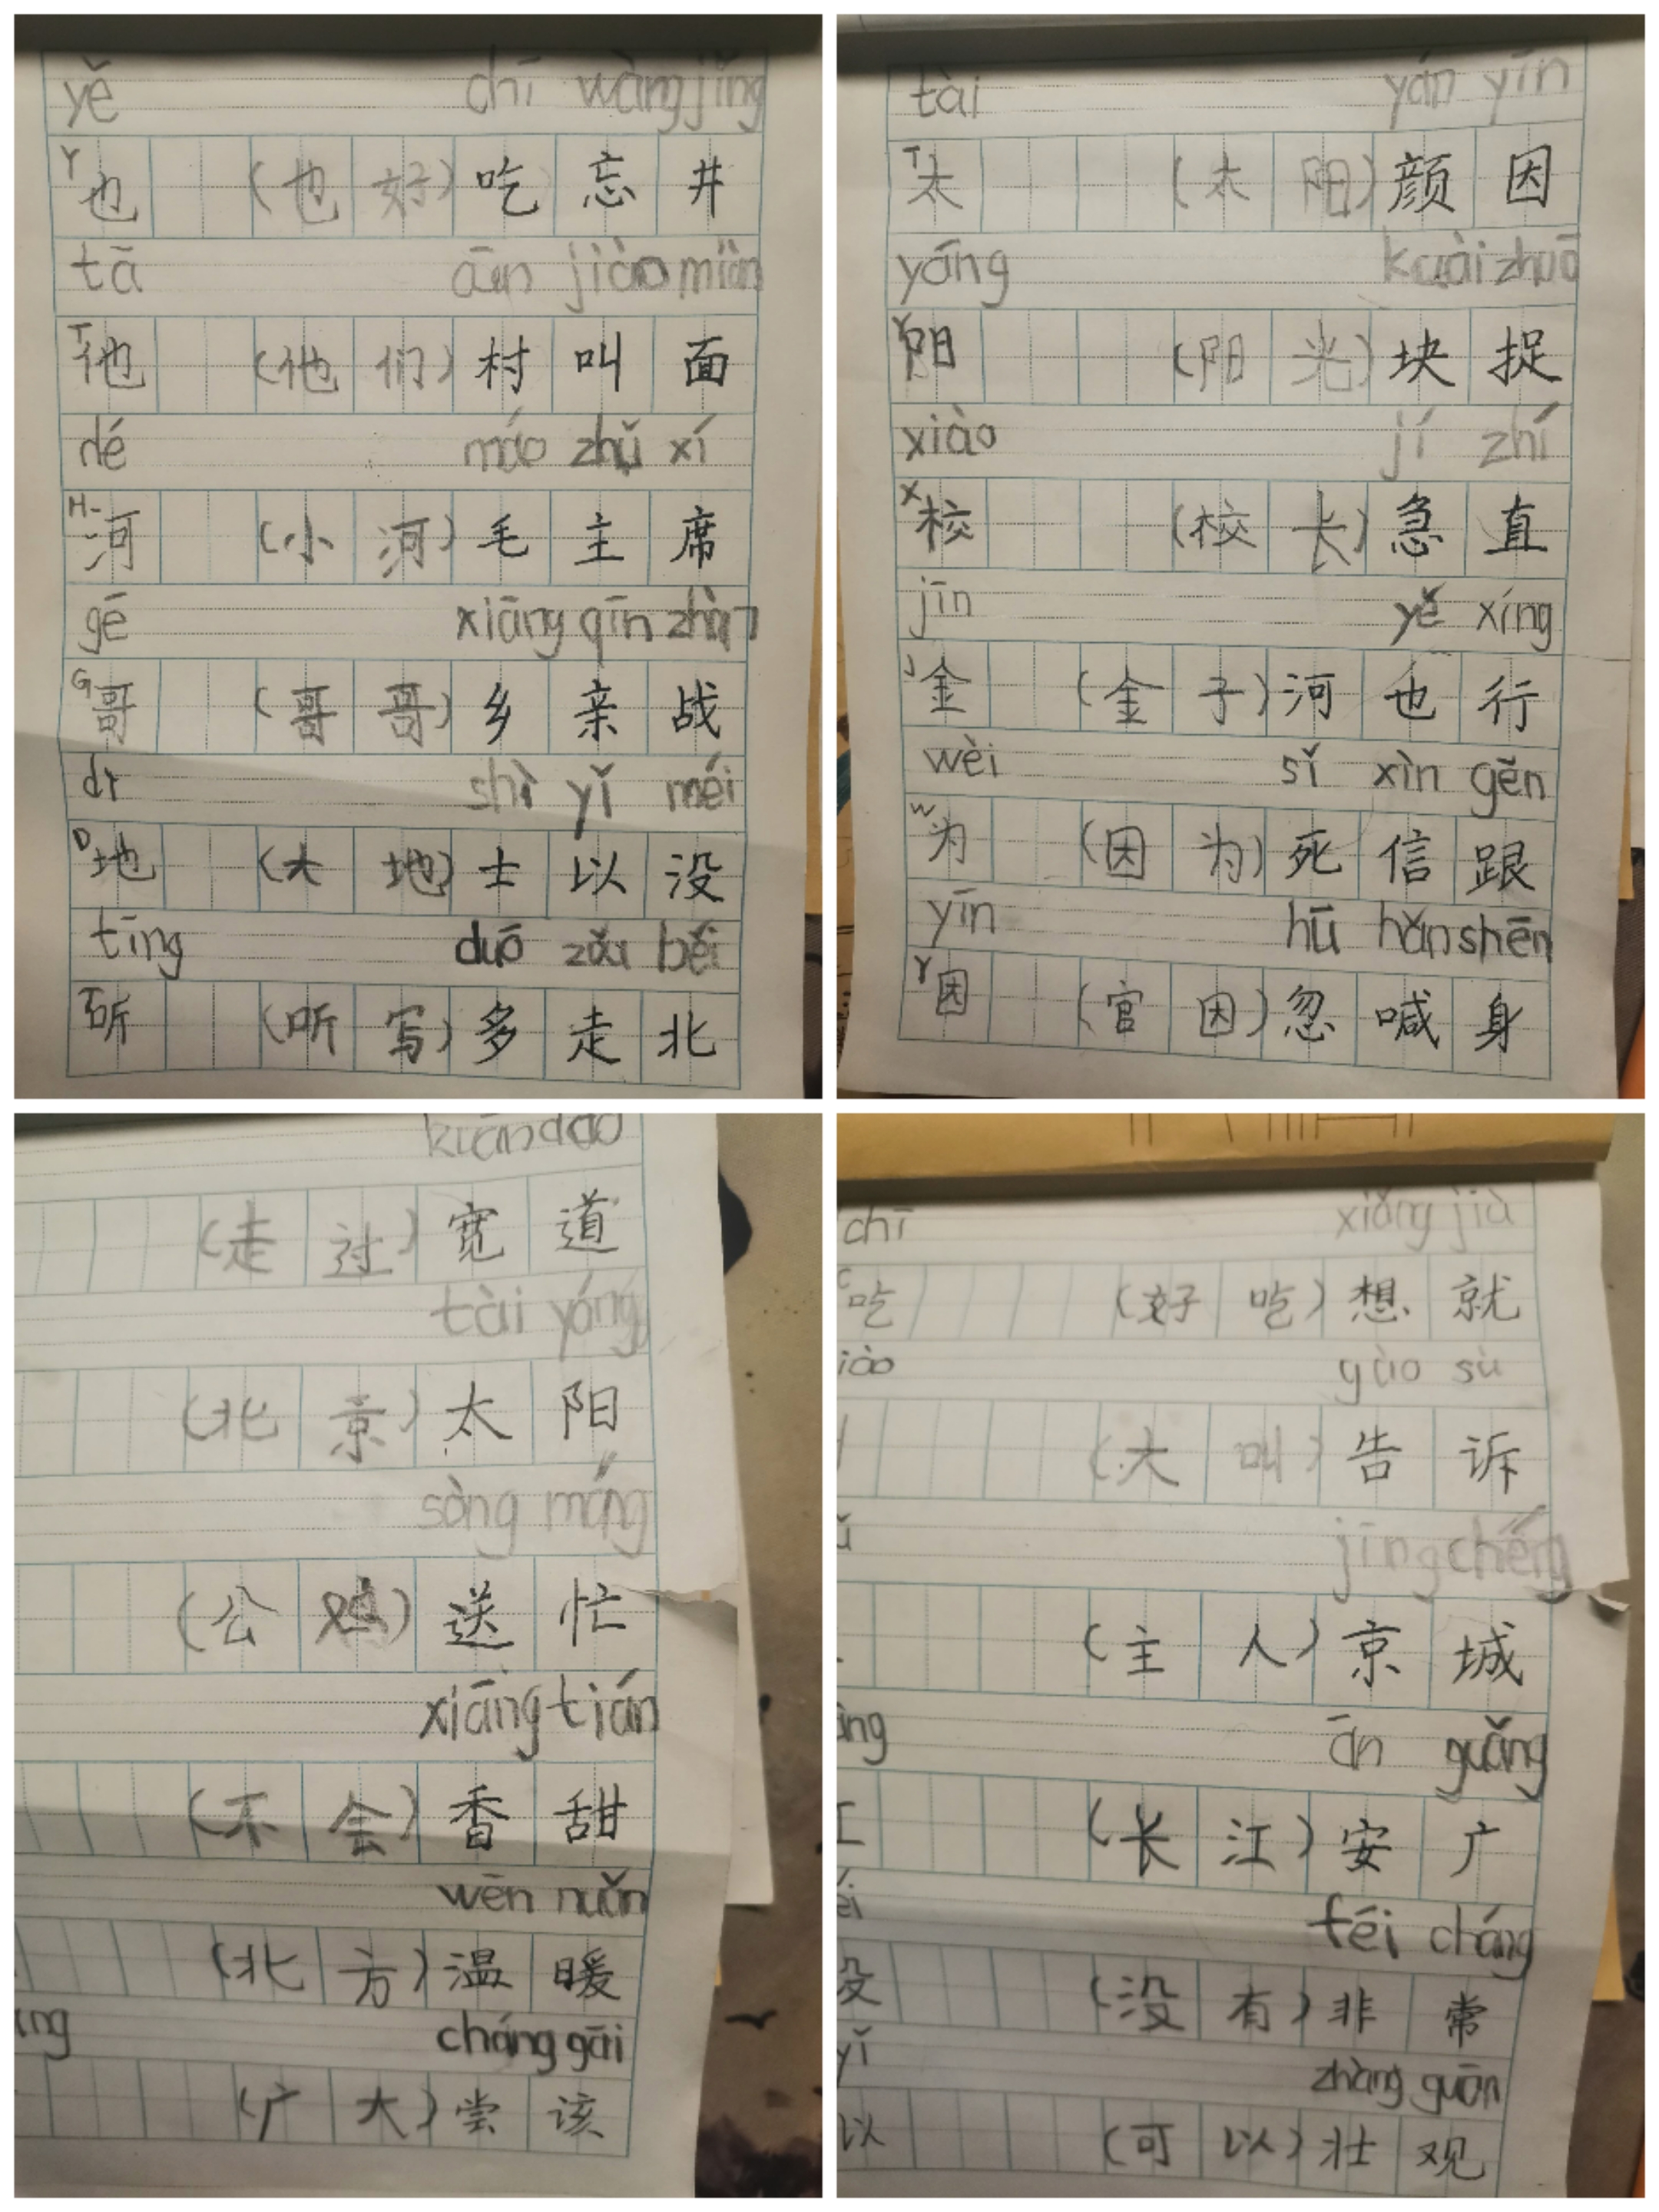 yě chī wàng jǐng
Y也 (也好) 吃 忘 井
tā cūn jiào miàn
T他 (他们) 村 叫 面
dé máo zhǔ xí
H-河 (小河) 毛 主 席
gē xiāng qīn zhàn
G哥 (哥哥) 乡 亲 战
dì shì yǐ méi
D地 (大地) 士 以 没
tīng duō zǒu běi
T听 (听写) 多 走 北
tài yán yīn
T太 (太阳) 颜 因
yáng kuài zhuō
Y阳 (阳光) 块 捉
xiào jí zhí
X校 (校长) 急 直
jīn yě xíng
J金 (金子) 河 也 行
wèi sǐ xìn gēn
W为 (因为) 死 信 跟
yīn hū hǎn shēn
Y因 (官因) 忽 喊 身
kuān dào
(走过) 宽 道
tài yáng
(北京) 太 阳
sòng máng
(公鸡) 送 忙
xiāng tián
(不会) 香 甜
wēn nuǎn
(北方) 温 暖
cháng gāi
(广大) 尝 该
chī xiǎng jiù
C吃 (好吃) 想 就
iào gào sù
(大叫) 告 诉
ǔ jīng chéng
(主人) 京 城
āng ān guǎng
(长江) 安 广
éi fēi cháng
没 (没有) 非 常
yǐ zhàng guān
以 (可以) 壮 观